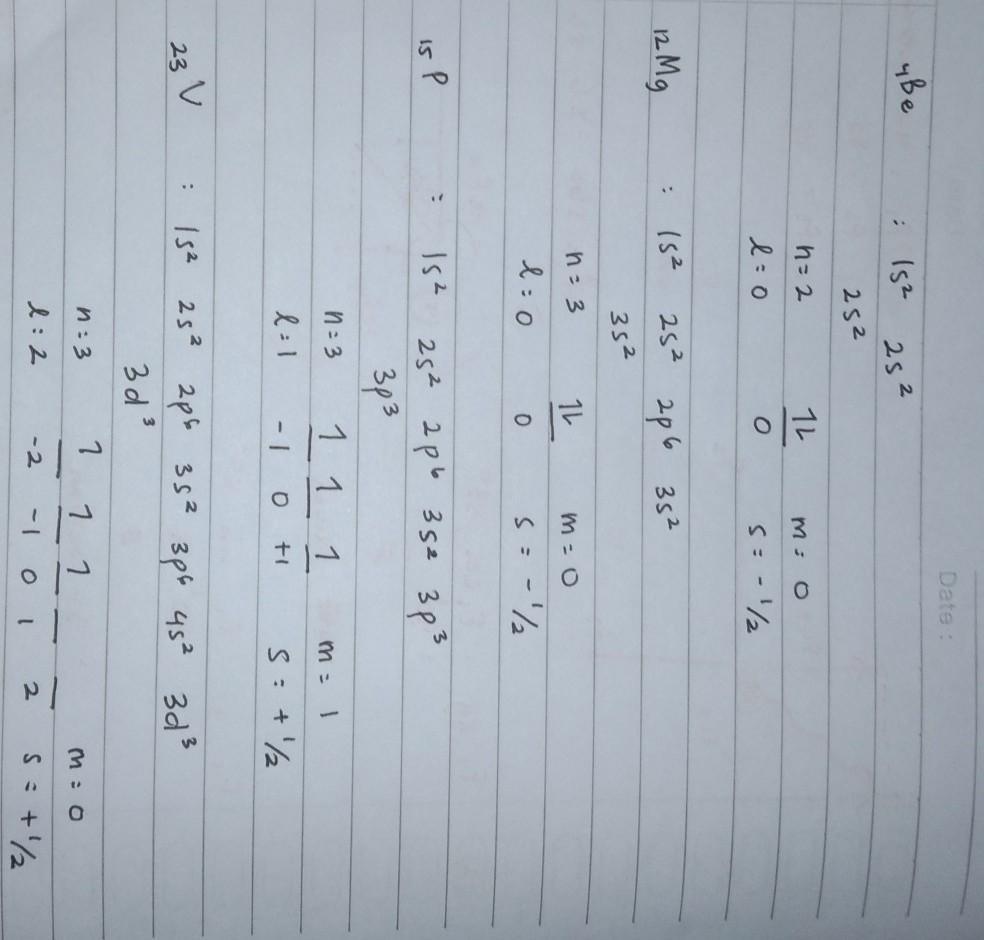 Date :
4Be : 1s2 2s2
2s2
n = 2 1L m = 0
l : 0 0 s = - 1/2
12Mg : 1s2 2s2 2p6 3s2
3s2
n = 3 1L m = 0
l : 0 0 s = - 1/2
15P : 1s2 2s2 2p6 3s2 3p3
3p3
n = 3 1 1 1 m = 1
l : 1 -1 0 +1 s = + 1/2
23V : 1s2 2s2 2p6 3s2 3p6 4s2 3d3
3d3
n : 3 1 1 1 m = 0
l : 2 -2 -1 0 1 2 s = + 1/2